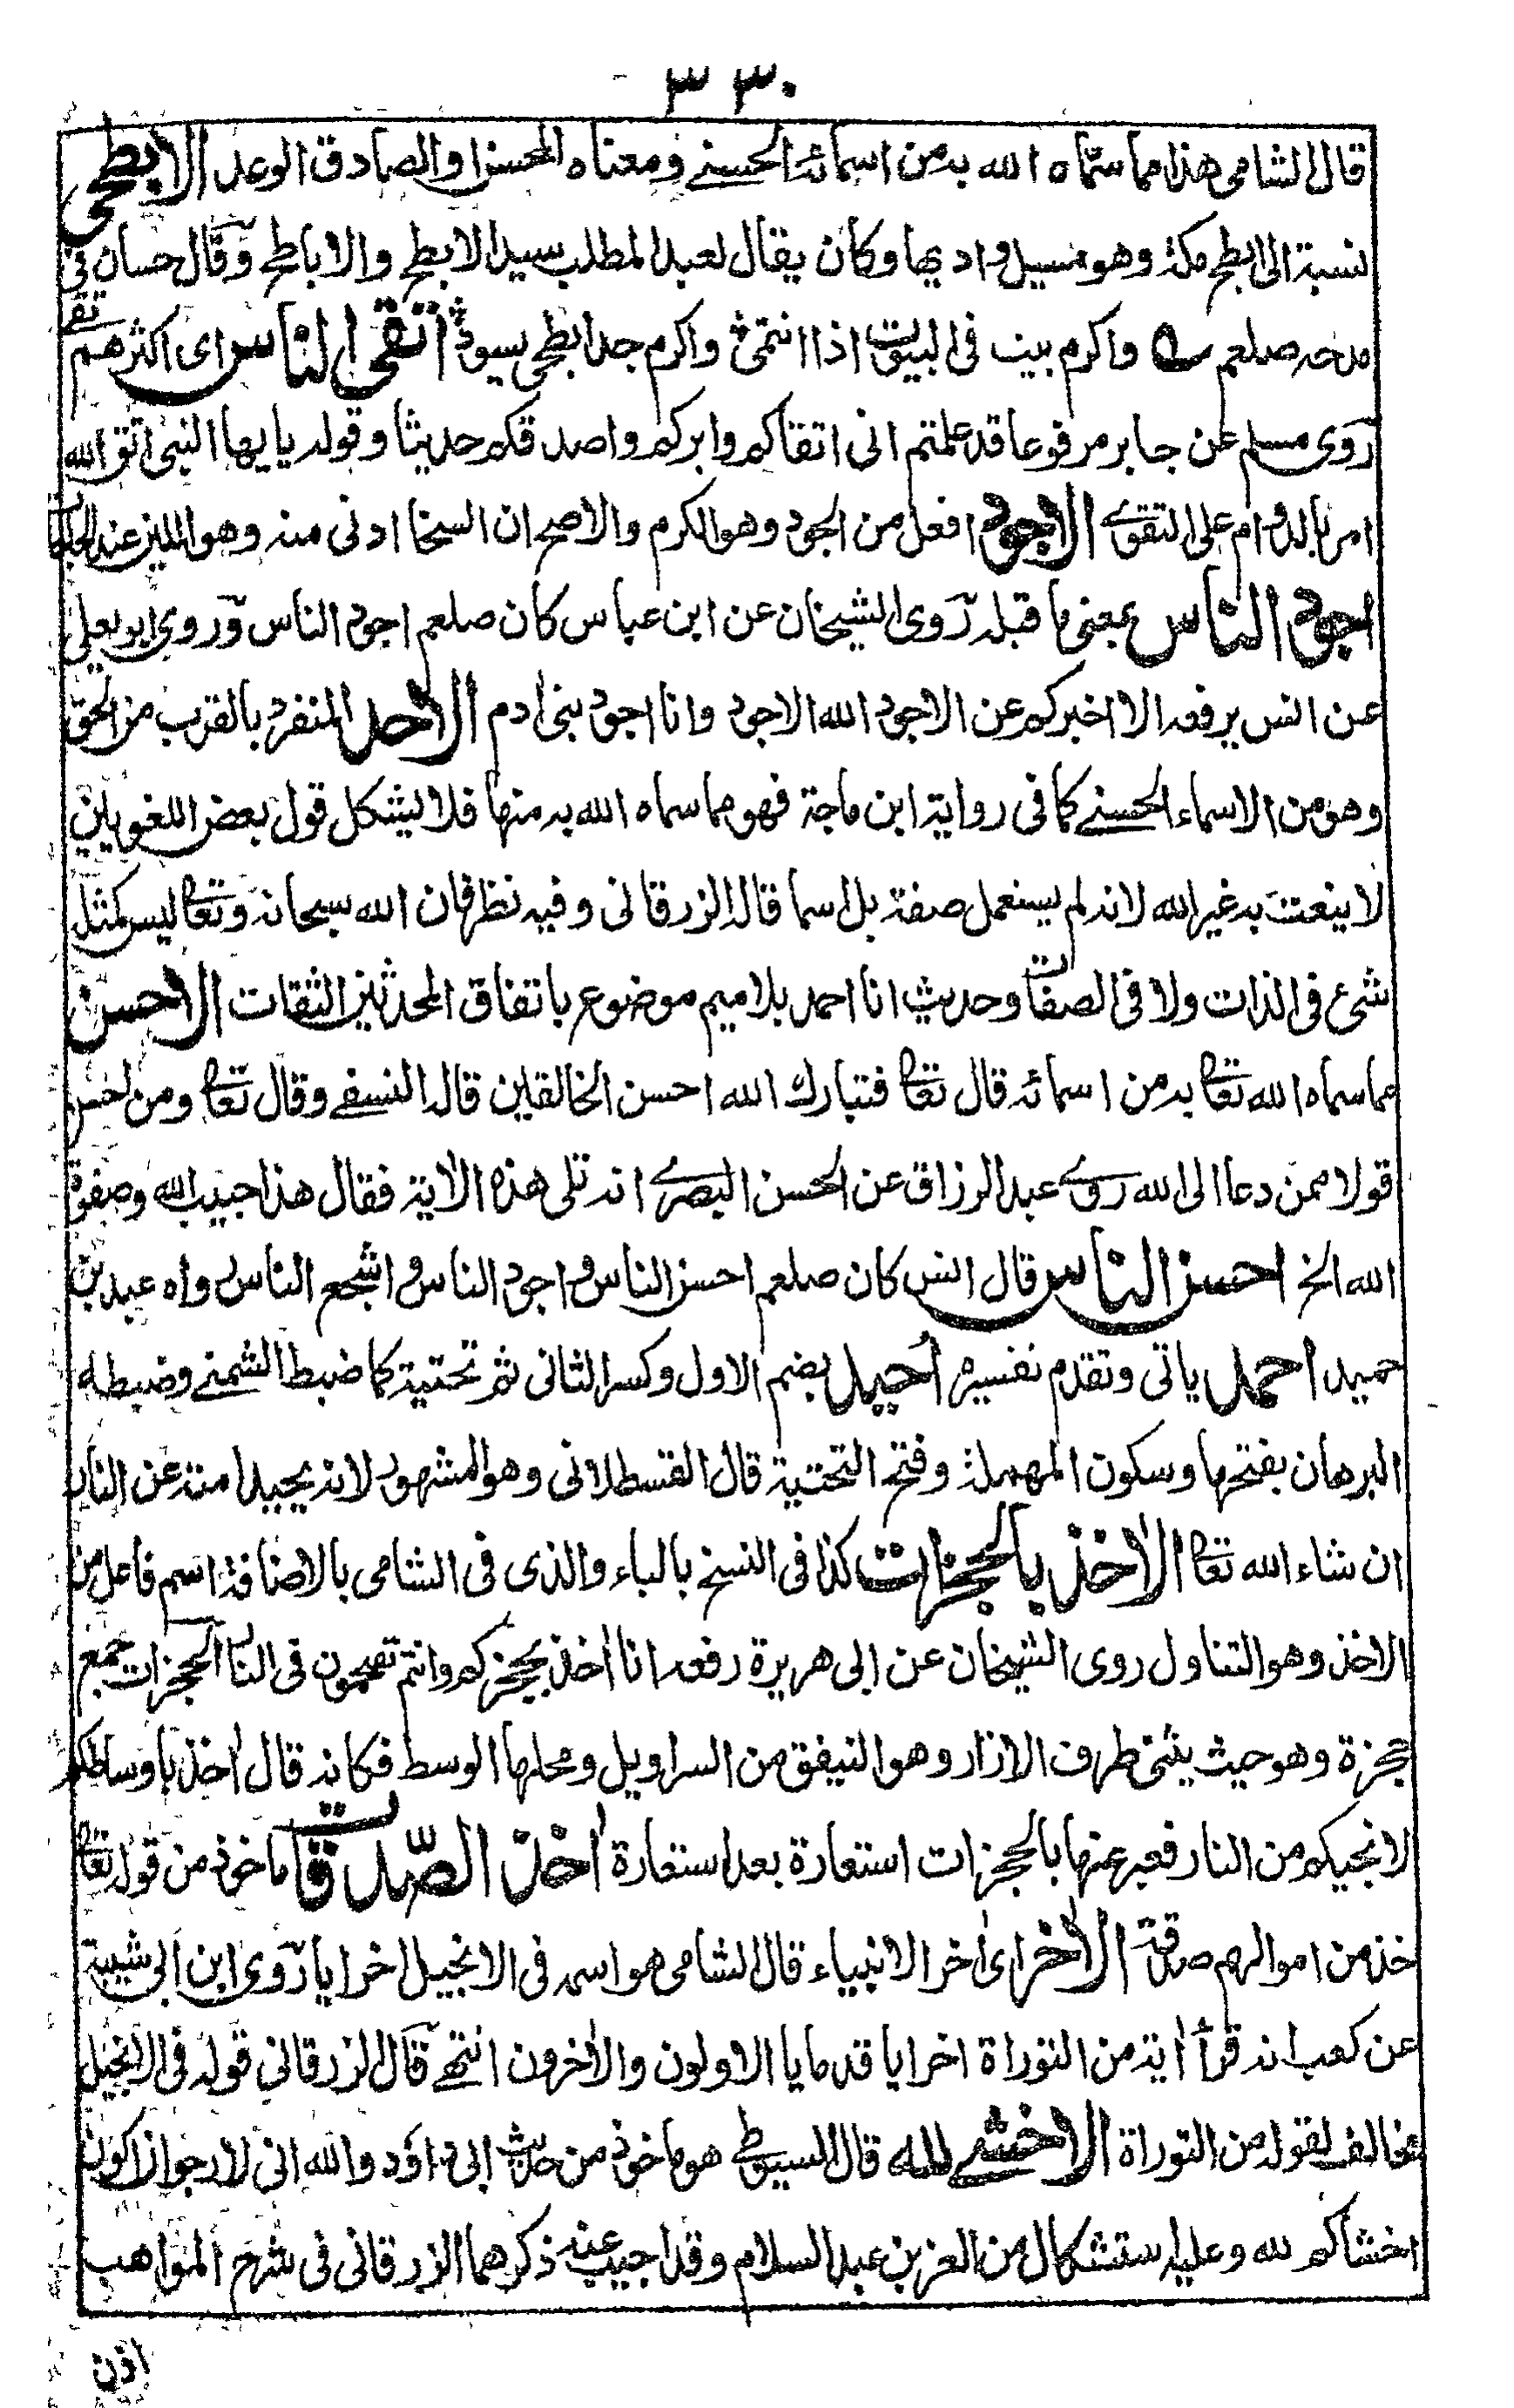 ٣٣٠
قال الشامى هذا مما سمّاه الله به من اسمائه الحسنے ومعناه المحسن او الصادق الوعد الابطحى
نسبة الى ابطح مكة وهو مسيل واديها وكان يقال لعبد المطلب سيد الابطح والاباطح وقال حسان فى
مدحه صلعم واكرم بيت فى البيوت اذا انتمى واكرم جد ابطحى يسود اتقى الناس اى اكثرهم تقے
روى مسلم عن جابر مرفوعا قد علمتم انى اتقاكم وابركم واصدقكم حديثا وقوله يايها النبى اتق الله
امر بالدوام على التقوے الاجود افعل من الجود وهو الكرم والاصح ان السخا ادنى منه وهو اللين عند الحاجات
اجود الناس بمعنى ما قبله روى الشيخان عن ابن عباس كان صلعم اجود الناس وروى ابو يعلى
عن انس يرفعه الا اخبركم عن الاجود الله الاجود وانا اجود بنى ادم الاحد المنفرد بالقرب من الحق
وهو من الاسماء الحسنے كما فى رواية ابن ماجة فهو مما سماه الله به منها فلا يشكل قول بعض اللغويين
لا ينعت به غير الله لانه لم يستعمل صفة بل اسما قاله الزرقانى وفيه نظر فان الله سبحانه وتعا ليس كمثله
شئ فى الذات ولا فى الصفات وحديث انا احمد بلا ميم موضوع باتفاق المحدثين الثقات الاحسن
مما سماه الله تعا به من اسمائه قال تعا فتبارك الله احسن الخالقين قاله النسفے وقال تعا ومن احسن
قولا ممن دعا الى الله روے عبد الرزاق عن الحسن البصرے انه تلى هذه الاية فقال هذا حبيب الله وصفوة
الله الخ احسن الناس قال انس كان صلعم احسن الناس و اجود الناس و اشجع الناس رواه عبد بن
حميد احمد ياتى وتقدم تفسيره اُحِيد بضم الاول وكسر الثانى ثم تحتية كما ضبط الشمنے وضبطه
البرهان بفتحها وسكون المهملة وفتح التحتية قال القسطلانى وهو المشهور لانه يحيد امته عن النار
ان شاء الله تعا الاٰخذ بالحجزات كذا فى النسخ بالباء والذى فى الشامى بالاضافة اسم فاعل من
الاخذ وهو التناول روى الشيخان عن ابى هريرة رفعه انا اٰخذ بحجزكم وانتم تقحمون فى النار الحجزات جمع
حجزة وهو حيث يثنى طرف الازار وهو النيفق من السراويل ومحلها الوسط فكانه قال اٰخذ باوساطكم
لانجيكم من النار فعبر عنها بالحجزات استعارة بعد استعارة اٰخذ الصّدقات ماخوذ من قوله تعا
خذ من اموالهم صدقة الاٰخر اى اٰخر الانبياء قال الشامى هو اسمه فى الانجيل اخرايا روى ابن ابى شيبة
عن كعب انه قرأ اٰية من التوراة اخرايا قدمايا الاولون والاٰخرون انتهے قال الزرقانى قوله فى الانجيل
مخالف لقوله من التوراة الاخشے لله قال السيوطے هو ماخوذ من حديث ابى داؤد والله انى لارجو ان اكون
اخشاكم لله وعليه استشكال من العز بن عبد السلام وقد اجيب عنه ذكرهما الزرقانى فى شرح المواهب
اذن